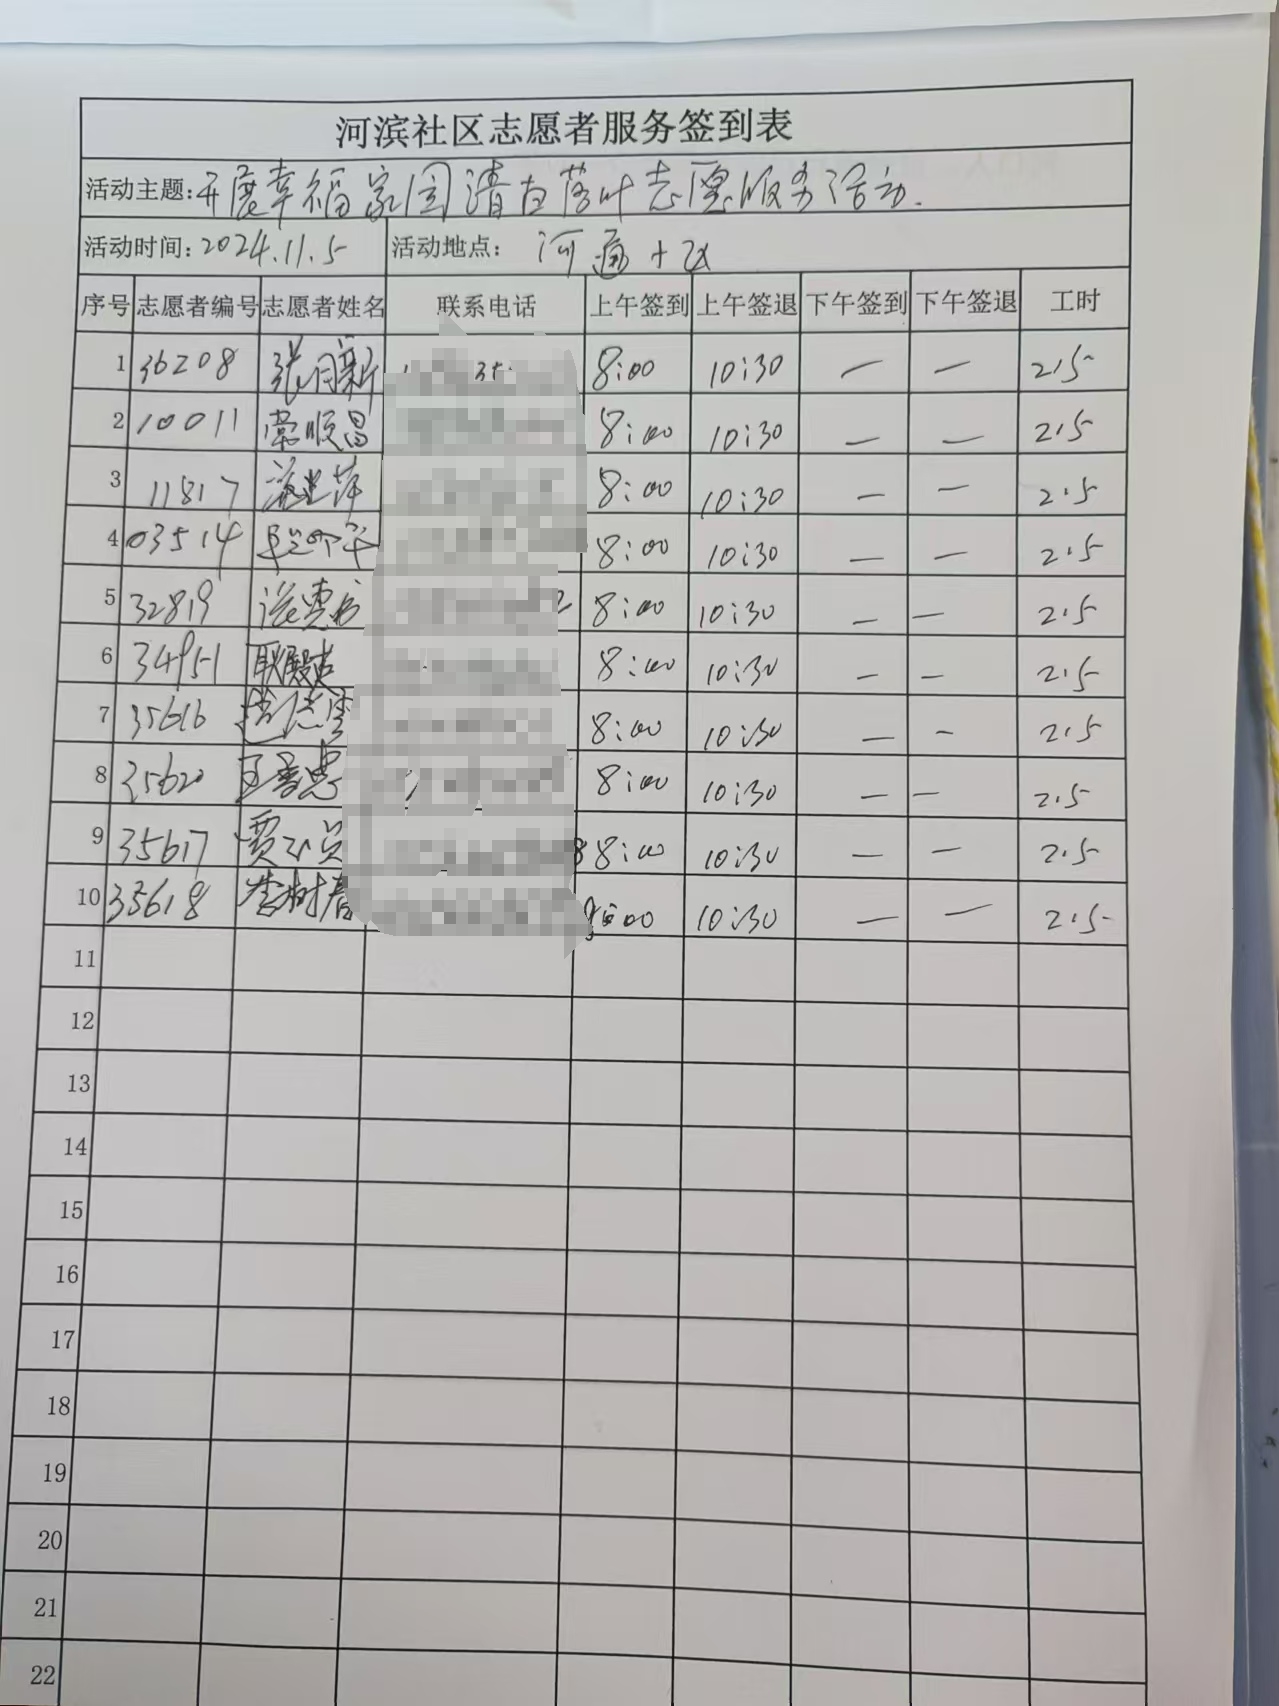 河滨社区志愿者服务签到表
活动主题:开展幸福家园清白落叶志愿服务活动.
活动时间:2024.11.5 活动地点: 河 十区
序号 志愿者编号 志愿者姓名 联系电话 上午签到 上午签退 下午签到 下午签退 工时
1 36208 张同新 8:00 10:30 — — 2.5
2 10011 常顺昌 8:00 10:30 — — 2.5
3 11817 8:00 10:30 — — 2.5
4 03514 8:00 10:30 — — 2.5
5 32819 8:00 10:30 — — 2.5
6 34951 耿殿 8:00 10:30 — — 2.5
7 35616 赵志 8:00 10:30 — — 2.5
8 35620 王 忠 8:00 10:30 — — 2.5
9 35617 贾 8:00 10:30 — — 2.5
10 35618 李树春 8:00 10:30 — — 2.5
11
12
13
14
15
16
17
18
19
20
21
22